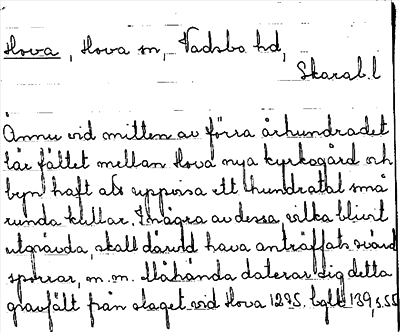 Hova, Hova sn, Vadsbo hd,
Skarab.l
Ännu vid mitten av förra århundradet
lär fältet mellan Hova nya kyrkogård och
byn haft att uppvisa ett hundratal små
runda kullar. I några av dessa, vilka blivit
utgrävda, skall därvid hava anträffats svärd
sporrar, m.m. Måhända daterar sig detta
gravfält från slaget vid Hova 1275. 139, s.55